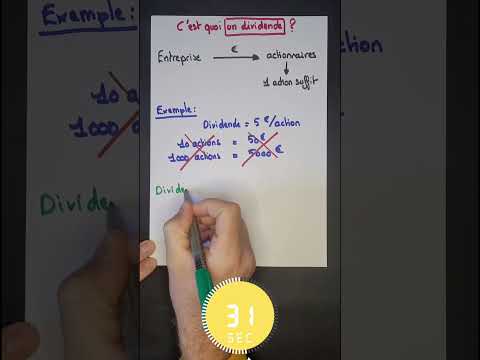 C'est quoi un dividende ?
€
Entreprise → actionnaires
↓
1 action suffit
Exemple:
Dividende = 5 €/action
10 actions = 50 €
1000 actions = 5000 €
Divide
31
SEC